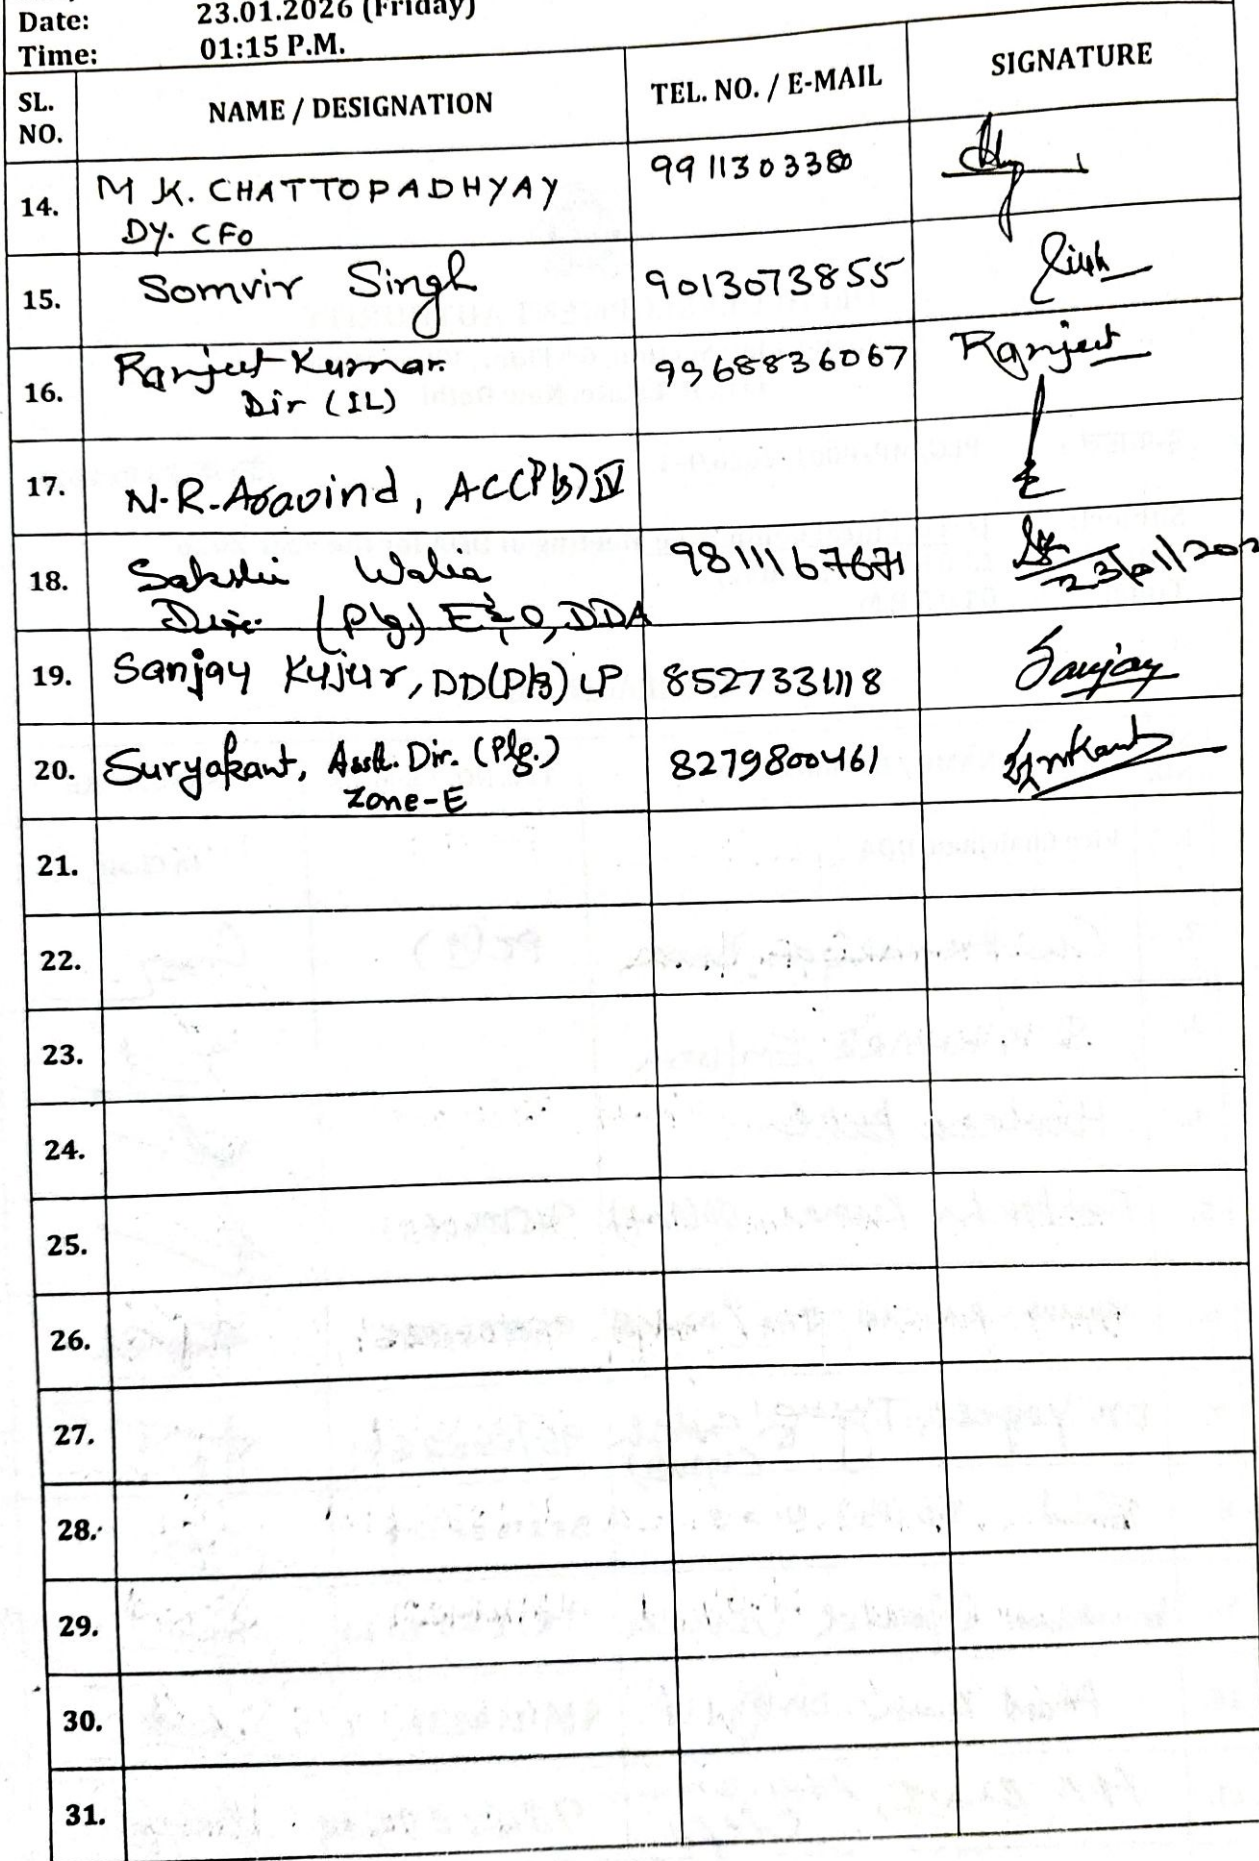 Date: 23.01.2026 (Friday)
Time: 01:15 P.M.
SL. NO. NAME / DESIGNATION TEL. NO. / E-MAIL SIGNATURE
14. M K. CHATTOPADHYAY 9911303380
DY. CFO
15. Somvir Singh 9013073855
16. Ranjeet Kumar 9968836067 Ranjeet
Dir (IL)
17. N.R. Aravind, AC(Plg) IV
18. Sakshi Walia 9811167671 23/01/202
Dir. (Plg.) E&O, DDA
19. Sanjay Kujur, DD(Plg) LP 8527331118 Sanjay
20. Suryakant, Asstt. Dir. (Plg.) 8279800461
Zone-E
21.
22.
23.
24.
25.
26.
27.
28.
29.
30.
31.